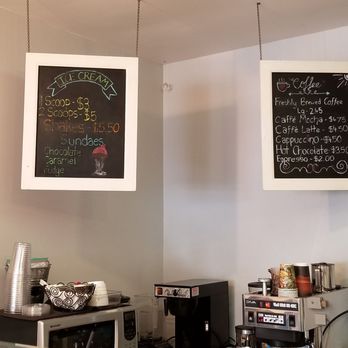 ICE CREAM
1 Scoop - $3
2 Scoops - $5
Shakes - $5.50
Sundaes
Chocolate
Caramel
Fudge
Coffee
Freshly Brewed Coffee
Lg - 2.45
Caffe Mocha - $4.75
Caffe Latte - $4.50
Cappuccino - $4.50
Hot Chocolate $3.50
Espresso - $2.00